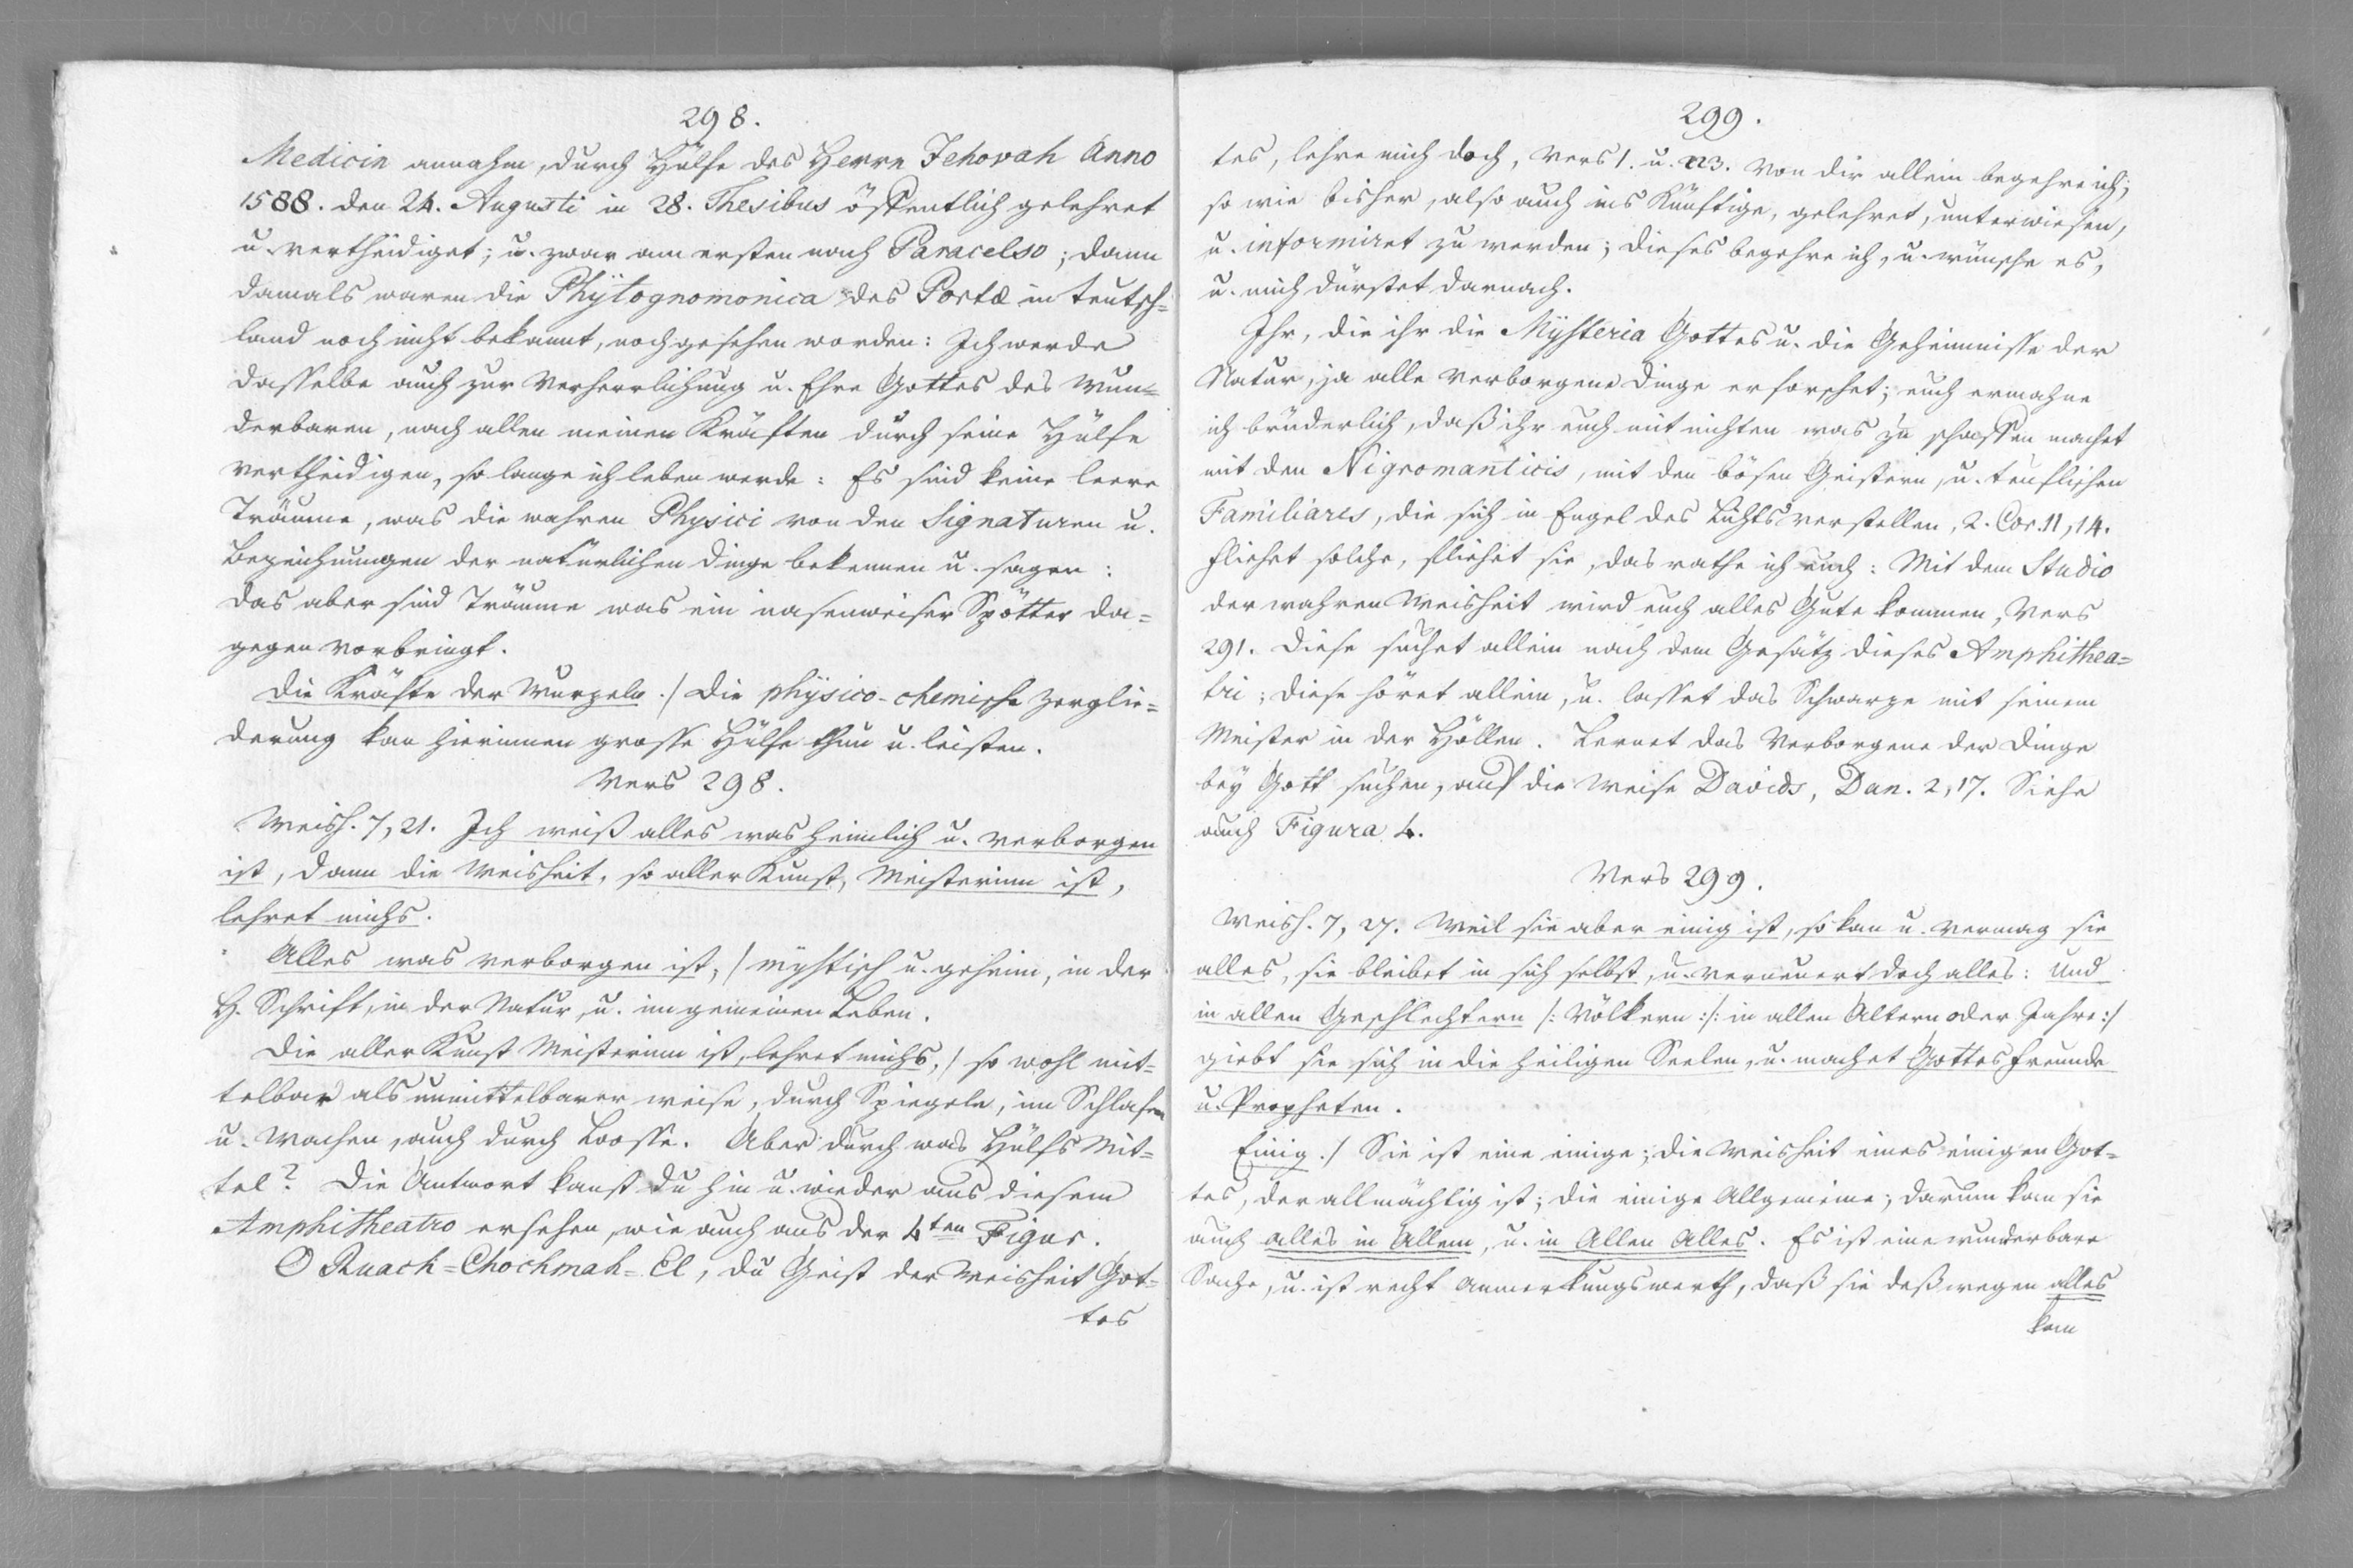 298.
Medicin annahm, durch Hülfe des Herrn Jehovah Anno
1588. den 24. Augusti in 28. Thesibus öffentlich gelehret
u. vertheidiget; u. zwar am ersten nach Paracelso; dann
damals waren die Phÿtognomonica des Portæ in Teutsch=
land noch nicht bekannt, noch gesehen worden: Ich werde
dasselbe auch zur Verherrlichung u. Ehre Gottes des Wun=
derbaren, nach allen meinen Kräften durch seine Hülfe
vertheidigen, so lange ich leben werde: Es sind keine leere
Träume, was die wahren Physici von den Signaturen u.
Bezeichnungen der natürlichen Dinge bekennen u. sagen:
das aber sind Träume was ein nasenweiser Spötter da=
gegen vorbringt.
Die Kräfte der Wurzeln./ Die phÿsico-chemische Zerglie=
derung kan hierinnen grosse Hülfe thun u. leisten.
Vers 298.
Weish. 7, 21. Ich weiß alles was heimlich u. verborgen
ist, dann die Weisheit, so aller Kunst, Meisterinn ist,
lehret michs.
Alles was verborgen ist,/ mÿstisch u. geheim, in der
H. Schrift, in der Natur, u. im gemeinen Leben.
Die aller Kunst Meisterinn ist, lehret michs,/ so wohl mit=
telbar als unmittelbarer weise, durch Spiegeln, im Schlafen
u. Wachen, auch durch Loosse. Aber durch was Hülfs Mit=
tel? Die Antwort kanst du hin u. wieder aus diesem
Amphitheatro ersehen, wie auch aus der 4ten Figur.
O Ruach=Chochmah=El, du Geist der Weisheit Got=
tes
299.
tes, lehre mich doch, Vers 1. u. 223. Von dir allein begehre ich,
so wie bisher, also auch ins Künftige, gelehret, unterwiesen,
u. informiret zu werden; dieses begehre ich, u. wünsche es,
u. mich dürstet darnach.
Ihr, die ihr die Mÿsteria Gottes u. die Geheimnisse der
Natur, ja alle verborgene Dinge erforschet; euch ermahne
ich brüderlich, daß ihr euch mit nichten was zu schaffen machet
mit den Nigromanticis, mit den bösen Geistern, u. teuflischen
Familiares, die sich in Engel des Lichts verstellen, 2. Cor. 11, 14.
fliehet solche, fliehet sie, das rathe ich euch: Mit dem Studio
der wahren Weisheit wird euch alles Gute kommen, Vers
291. Diese suchet allein nach dem Gesätz dieses Amphithea=
tri; diese höret allein, u. lasset das Schwarze mit seinem
Meister in der Höllen. Lernet das Verborgene der Dinge
beÿ Gott suchen, auf die Weise Davids, Dan. 2, 17. Siehe
auch Figura 4.
Vers 299.
Weish. 7, 27. Weil sie aber einig ist, so kan u. vermag sie
alles, sie bleibet in sich selbst, u. verneuert doch alles: und
in allen Geschlechtern /: Völkern :/: in allen Altern oder Jahre:/
giebt sie sich in die heiligen Seelen, u. machet Gottes Freunde
u. Propheten.
Einig./ Sie ist eine einige; die Weisheit eines einigen Got=
tes, der allmächtig ist; die einige Allgemeine; darum kan sie
auch alles in Allem, u. in Allen Alles. Es ist eine wunderbare
Sache, u. ist recht anmerkungswerth, daß sie deßwegen alles
kan